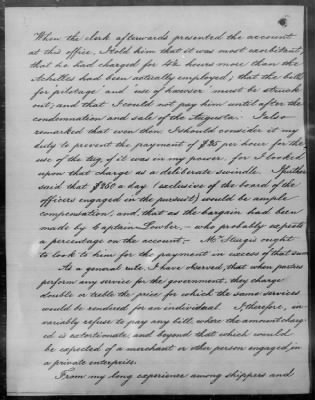 When the clerk afterwards presented the account
at this office, I told him that it was most exorbitant,
that he had charged for 4½ hours more than the
Achilles had been actually employed; that the bills
for 'pilotage' and 'use of hawser' must be struck
out; and that I could not pay him until after the
condemnation and sale of the Augusta. I also
remarked that even then I should consider it my
duty to prevent the payment of $25 per hour for the
use of the tug, if it was in my power, for I looked
upon that charge as a deliberate swindle. I further
said that $250 a day (exclusive of the board of the
officers engaged in the pursuit) would be ample
compensation, and, that as the bargain had been
made by Captain Fowler, – who probably expects
a percentage on the account, – Mr Sturgis ought
to look to him for the payment in excess of that sum.
As a general rule, I have observed, that when parties
perform any service for the government, they charge
double or treble the price for which the same services
would be rendered for an individual. I therefore, in-
variably refuse to pay any bill, where the amount charg-
ed is extortionate, and beyond that which would
be expected of a merchant or other person engaged in
a private enterprise.
From my long experience among shippers and